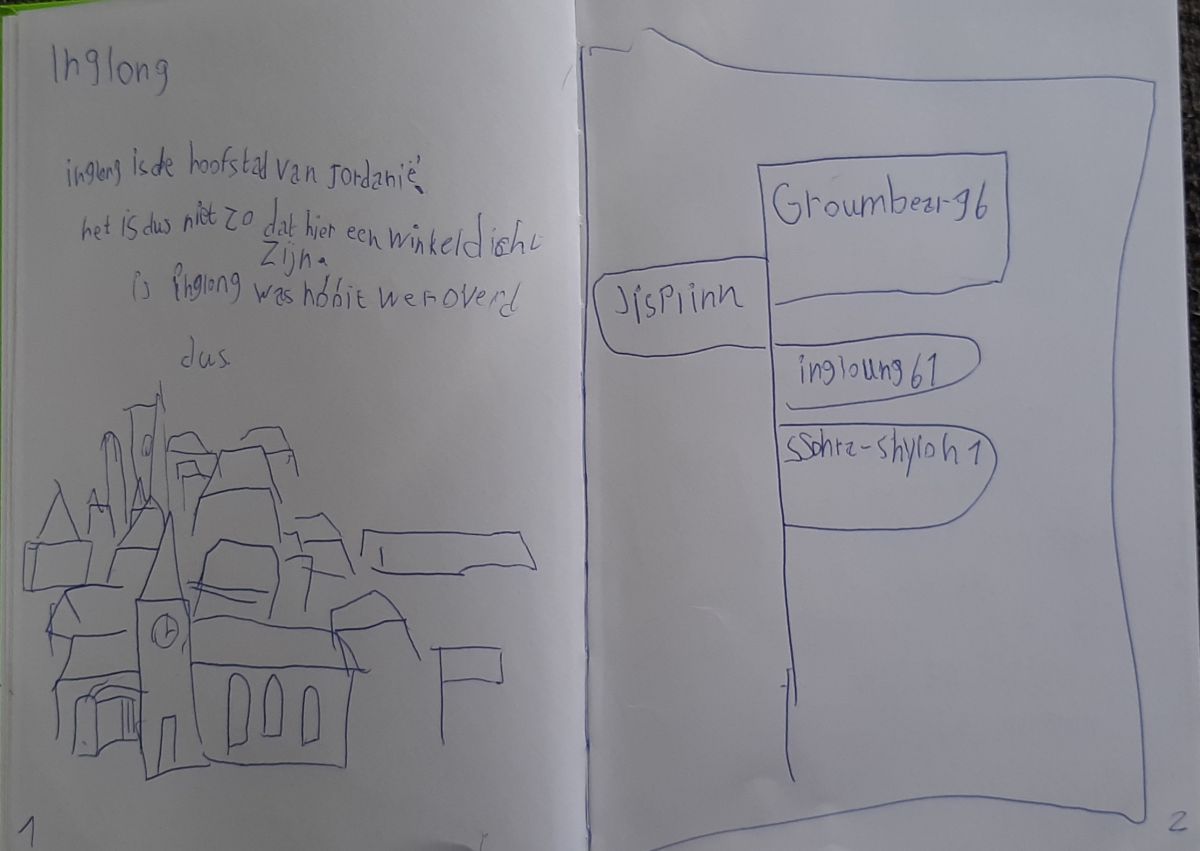 Inglong
inglong is de hoofstad van Jordanië.
het is dus niet zo dat hier een winkel dicht
zijn.
is inglong was nooit weroverd
dus.
1
Groumbearg6
Jisplinn
ingloung61
ssohra-shyloh1
2